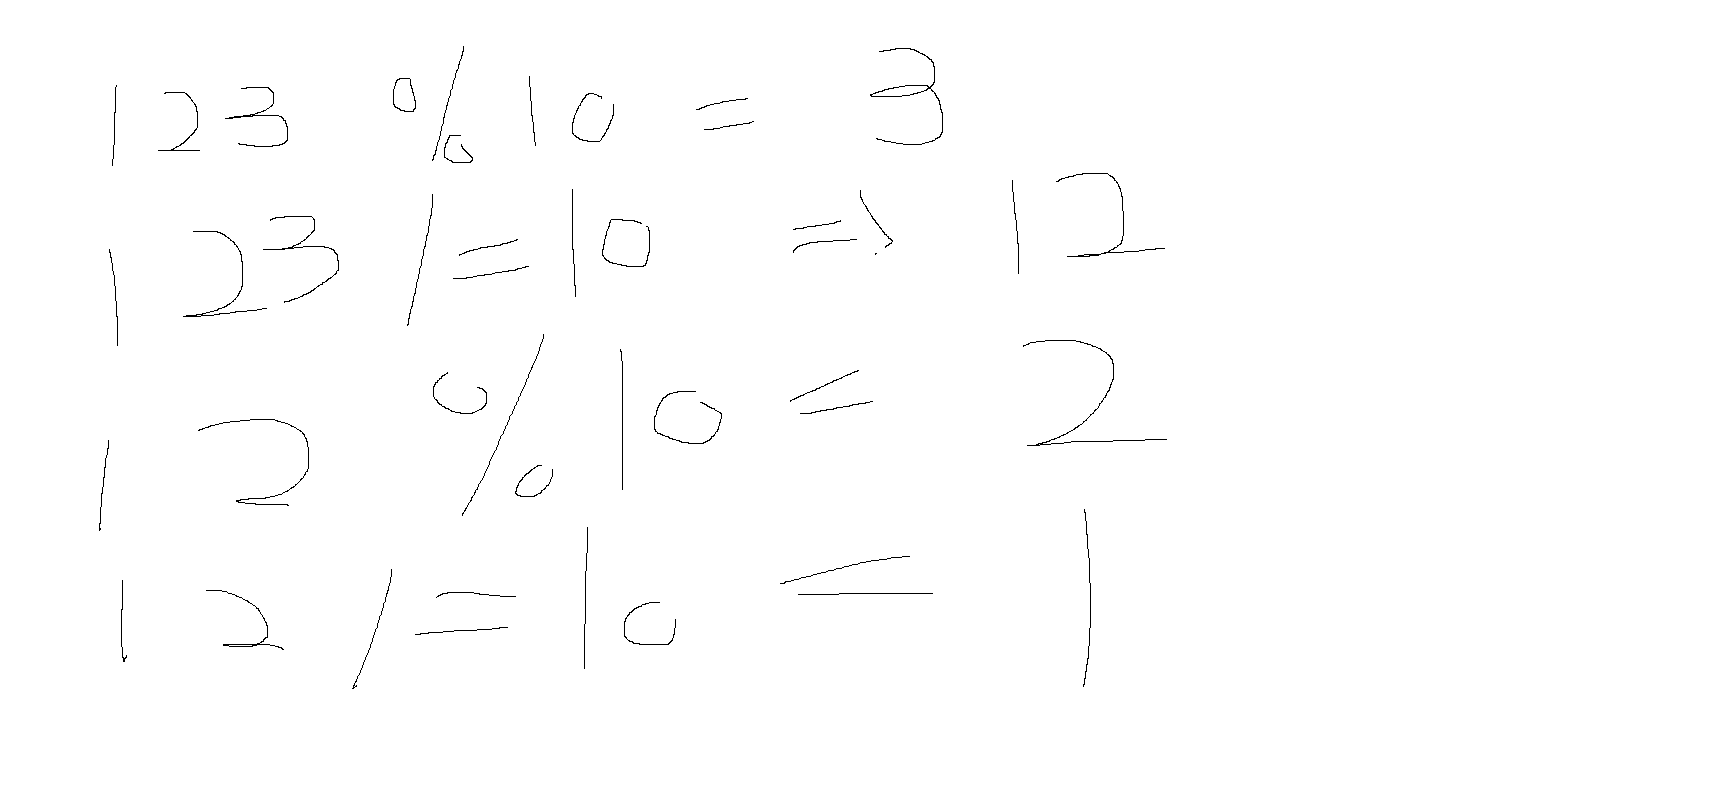 123 % 10 = 3
123 /= 10 => 12
12 % 10 = 2
12 /= 10 = 1